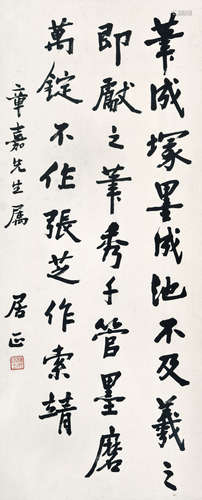 筆成塚墨成池不及羲之
即獻之筆禿千管墨磨
萬錠不作張芝作索靖
章嘉先生属
居正